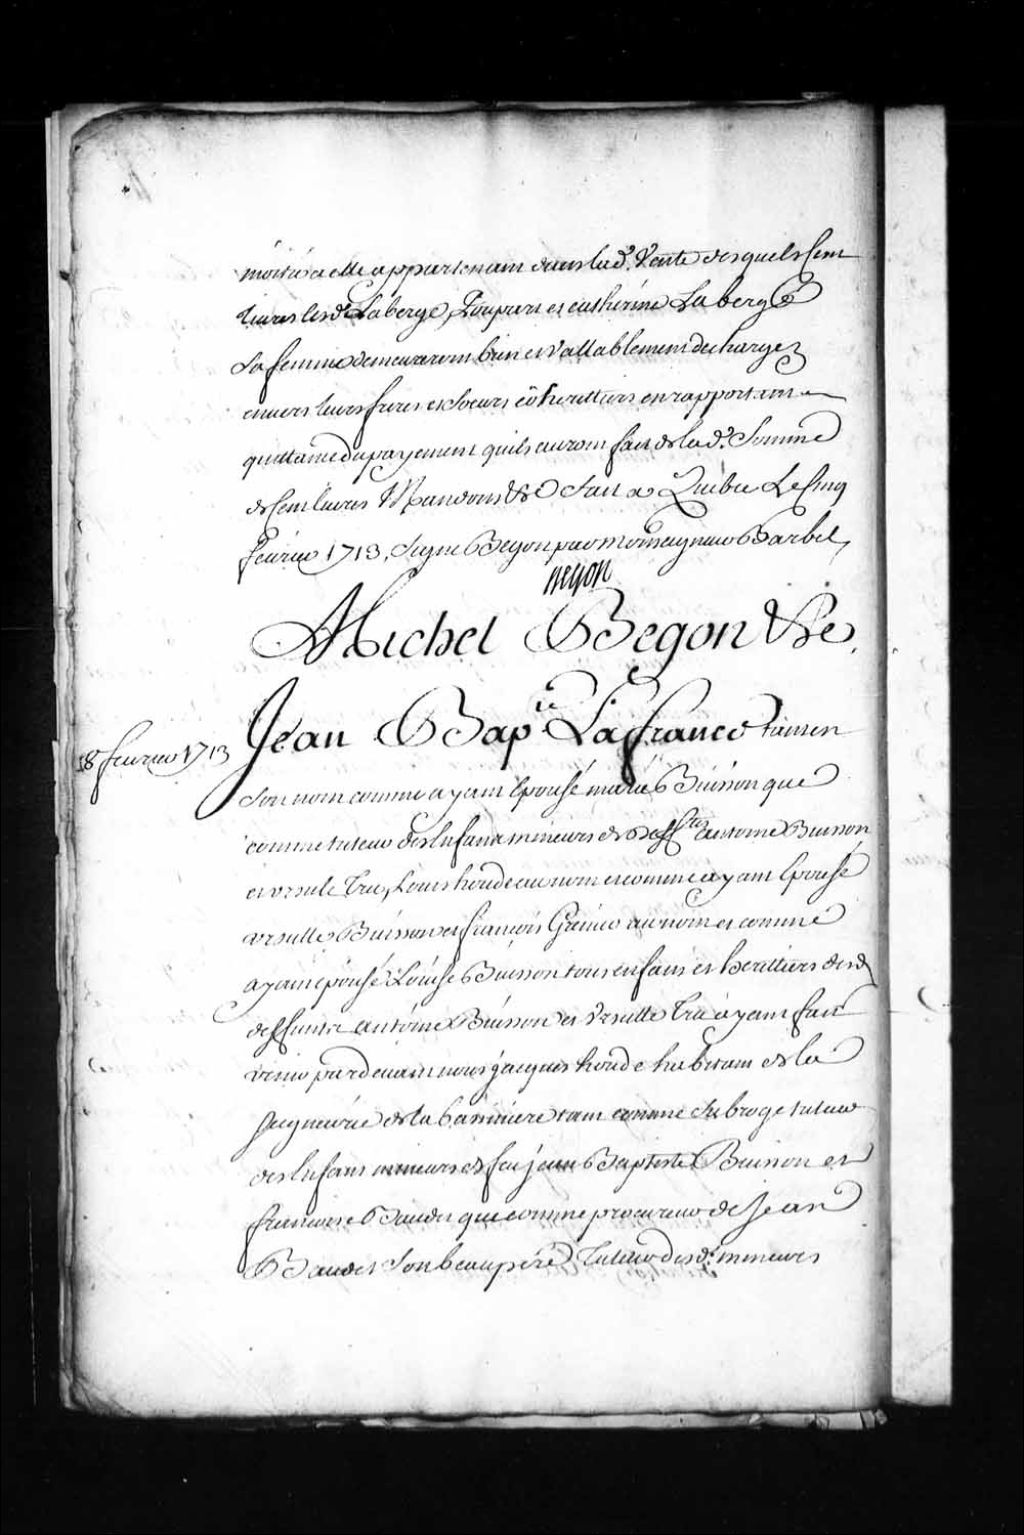 moitié a elle appartenant dans lad.e Vente desquels Cent
livres lesd. Laberge, et catherine Laberge
Sa femme demeureront bien et Vallablement decharges
envers leurs freres et Soeurs cõheritiers en rapportant
quittance du payement quils auront fait de lad.e Somme
de Cent livres Mandons &c fait a Quebec Le Cinq
fevrier 1713, Signe Begon par Monseigneur Barbel,
Begon
Michel Begon &c.
18 fevrier 1713
Jean Bap.te Lafranco tant en
Son nom comme ayant Epousé marie Buisson que
comme tuteur des Enfans mineurs de deff.ts antoine Buisson
et ursule Tru, Louis houde au nom et comme ayant Epousé
ursulle Buisson et françois Grenier au nom et comme
ayant épousé Louise Buisson tous enfans et heritiers desd.
deffunts antoine Buisson et Ursulle Tru ayant fait
venir pardevant nous jacques houde habitant de la
Seigneurie de la tant comme Subrogé tuteur
des Enfans mineurs de feu jean Baptiste Buisson et
francoise Baudet que comme procureur de Jean
Baudet Son beau pere, Tuteur desd. mineurs